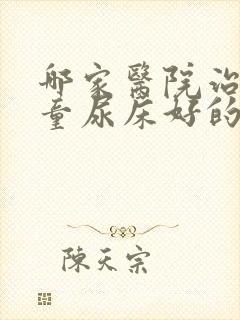 哪家醫院治
童尿床好的
陳天宗